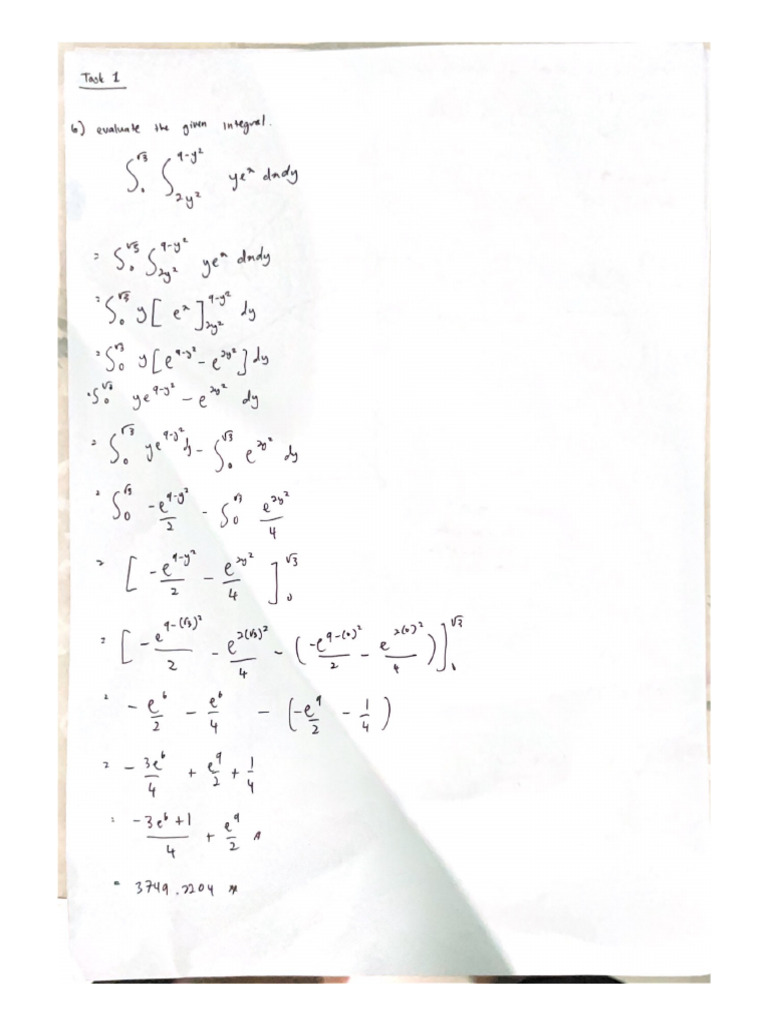 Task 1
b) evaluate the given integral.
∫₀^√3 ∫_{2y²}^{9-y²} ye^x dxdy
= ∫₀^√3 ∫_{2y²}^{9-y²} ye^x dxdy
= ∫₀^√3 y[e^x]_{2y²}^{9-y²} dy
= ∫₀^√3 y[e^{9-y²} - e^{2y²}] dy
= ∫₀^√3 ye^{9-y²} - e^{2y²} dy
= ∫₀^√3 ye^{9-y²} dy - ∫₀^√3 e^{2y²} dy
= ∫₀^√3 -e^{9-y²}/2 - ∫₀^√3 e^{2y²}/4
= [-e^{9-y²}/2 - e^{2y²}/4]₀^√3
= [-e^{9-(√3)²}/2 - e^{2(√3)²}/4 - (-e^{9-(0)²}/2 - e^{2(0)²}/4)]₀^√3
= -e^6/2 - e^6/4 - (-e^9/2 - 1/4)
= -3e^6/4 + e^9/2 + 1/4
= (-3e^6+1)/4 + e^9/2
= 3749.2204